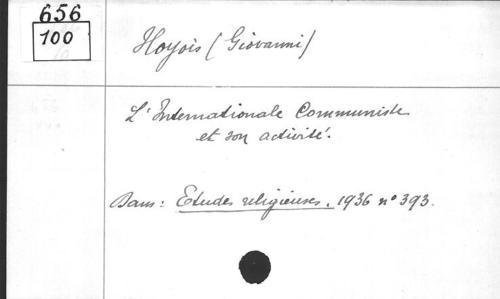 656
100
Hoyois (Giovanni)
L'Internationale Communiste
et son activité.
Dans : Etudes religieuses, 1936 n° 393.